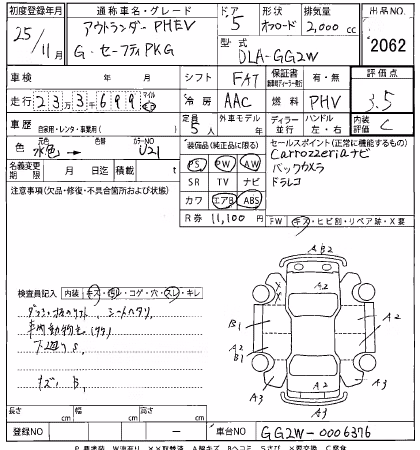 初度登録年月 通称車名・グレード ドア 形状 排気量 出品NO.
25/11月 アウトランダー PHEV 5 オフロード 2,000cc 2062
G・セーフティPKG 型式 DLA-GG2W
車検 年 月 シフト FAT 保証書 有・無 評価点
走行 2 3 万 3 千 6 9 9 マイル km 冷房 AAC 燃料 PHV 3.5
車歴 自家用・レンタ・事業用( ) 定員 5人 外車モデル 年 ディーラー 並行 ハンドル 左・右 内装評価 C
色 元色 水色 → 色替 カラーNO U21
装備品(純正品に限る) セールスポイント(正常に機能するもの)
名義変更期限 月 日迄 積載 t
PS PW AW Carrozzeriaナビ
SR TV ナビ バックカメラ
カワ エアB ABS ドラレコ
注意事項(欠品・修復・不具合箇所および状態)
R券 11,100円
FW キズ・ヒビ割・リペア跡・X要
検査員記入 内装 キズ・汚レ・コゲ・穴・スレ・キレ
シートヘタリ
下廻りS
A B2
A2
A2
B1
A2
B1
A2
A2
A2
A3
A3
長さ cm 幅 cm 高さ cm
登録NO － 車台NO GG2W-0006376